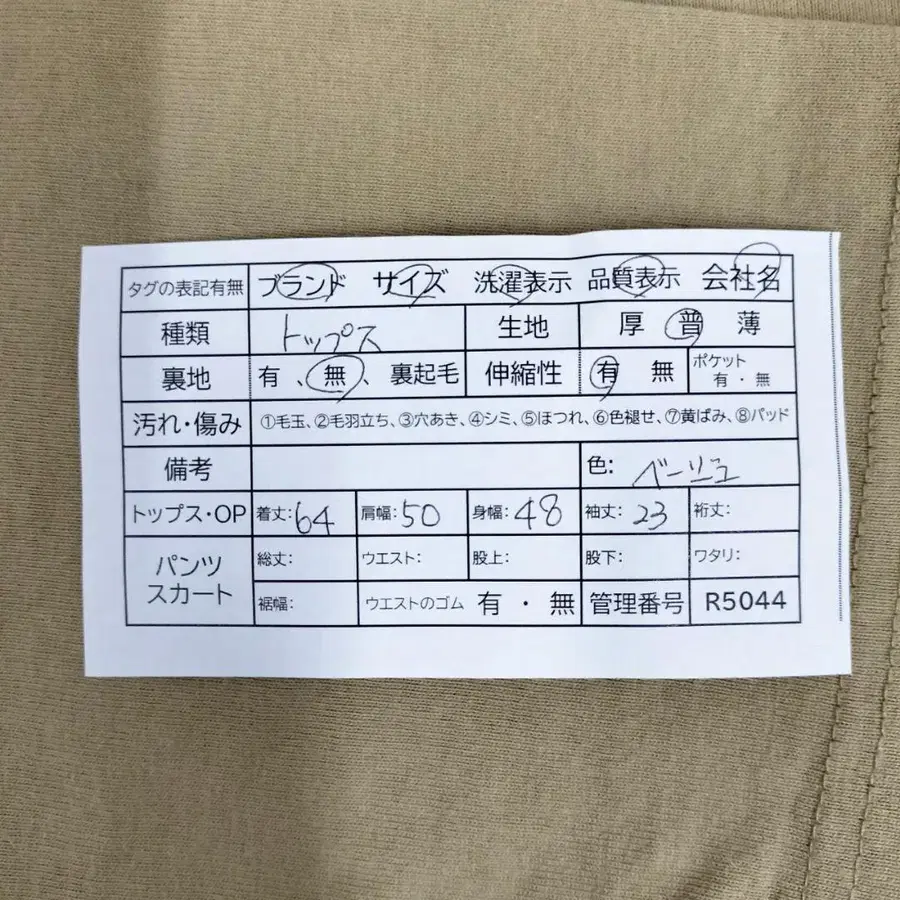 タグの表記有無 ブランド サイズ 洗濯表示 品質表示 会社名
種類 トップス 生地 厚 普 薄
裏地 有、無、裏起毛 伸縮性 有 無 ポケット 有・無
汚れ・傷み ①毛玉、②毛羽立ち、③穴あき、④シミ、⑤ほつれ、⑥色褪せ、⑦黄ばみ、⑧パッド
備考 色: ベージュ
トップス・OP 着丈:64 肩幅:50 身幅:48 袖丈:23 裄丈:
パンツ 総丈: ウエスト: 股上: 股下: ワタリ:
スカート 裾幅: ウエストのゴム 有・無 管理番号 R5044